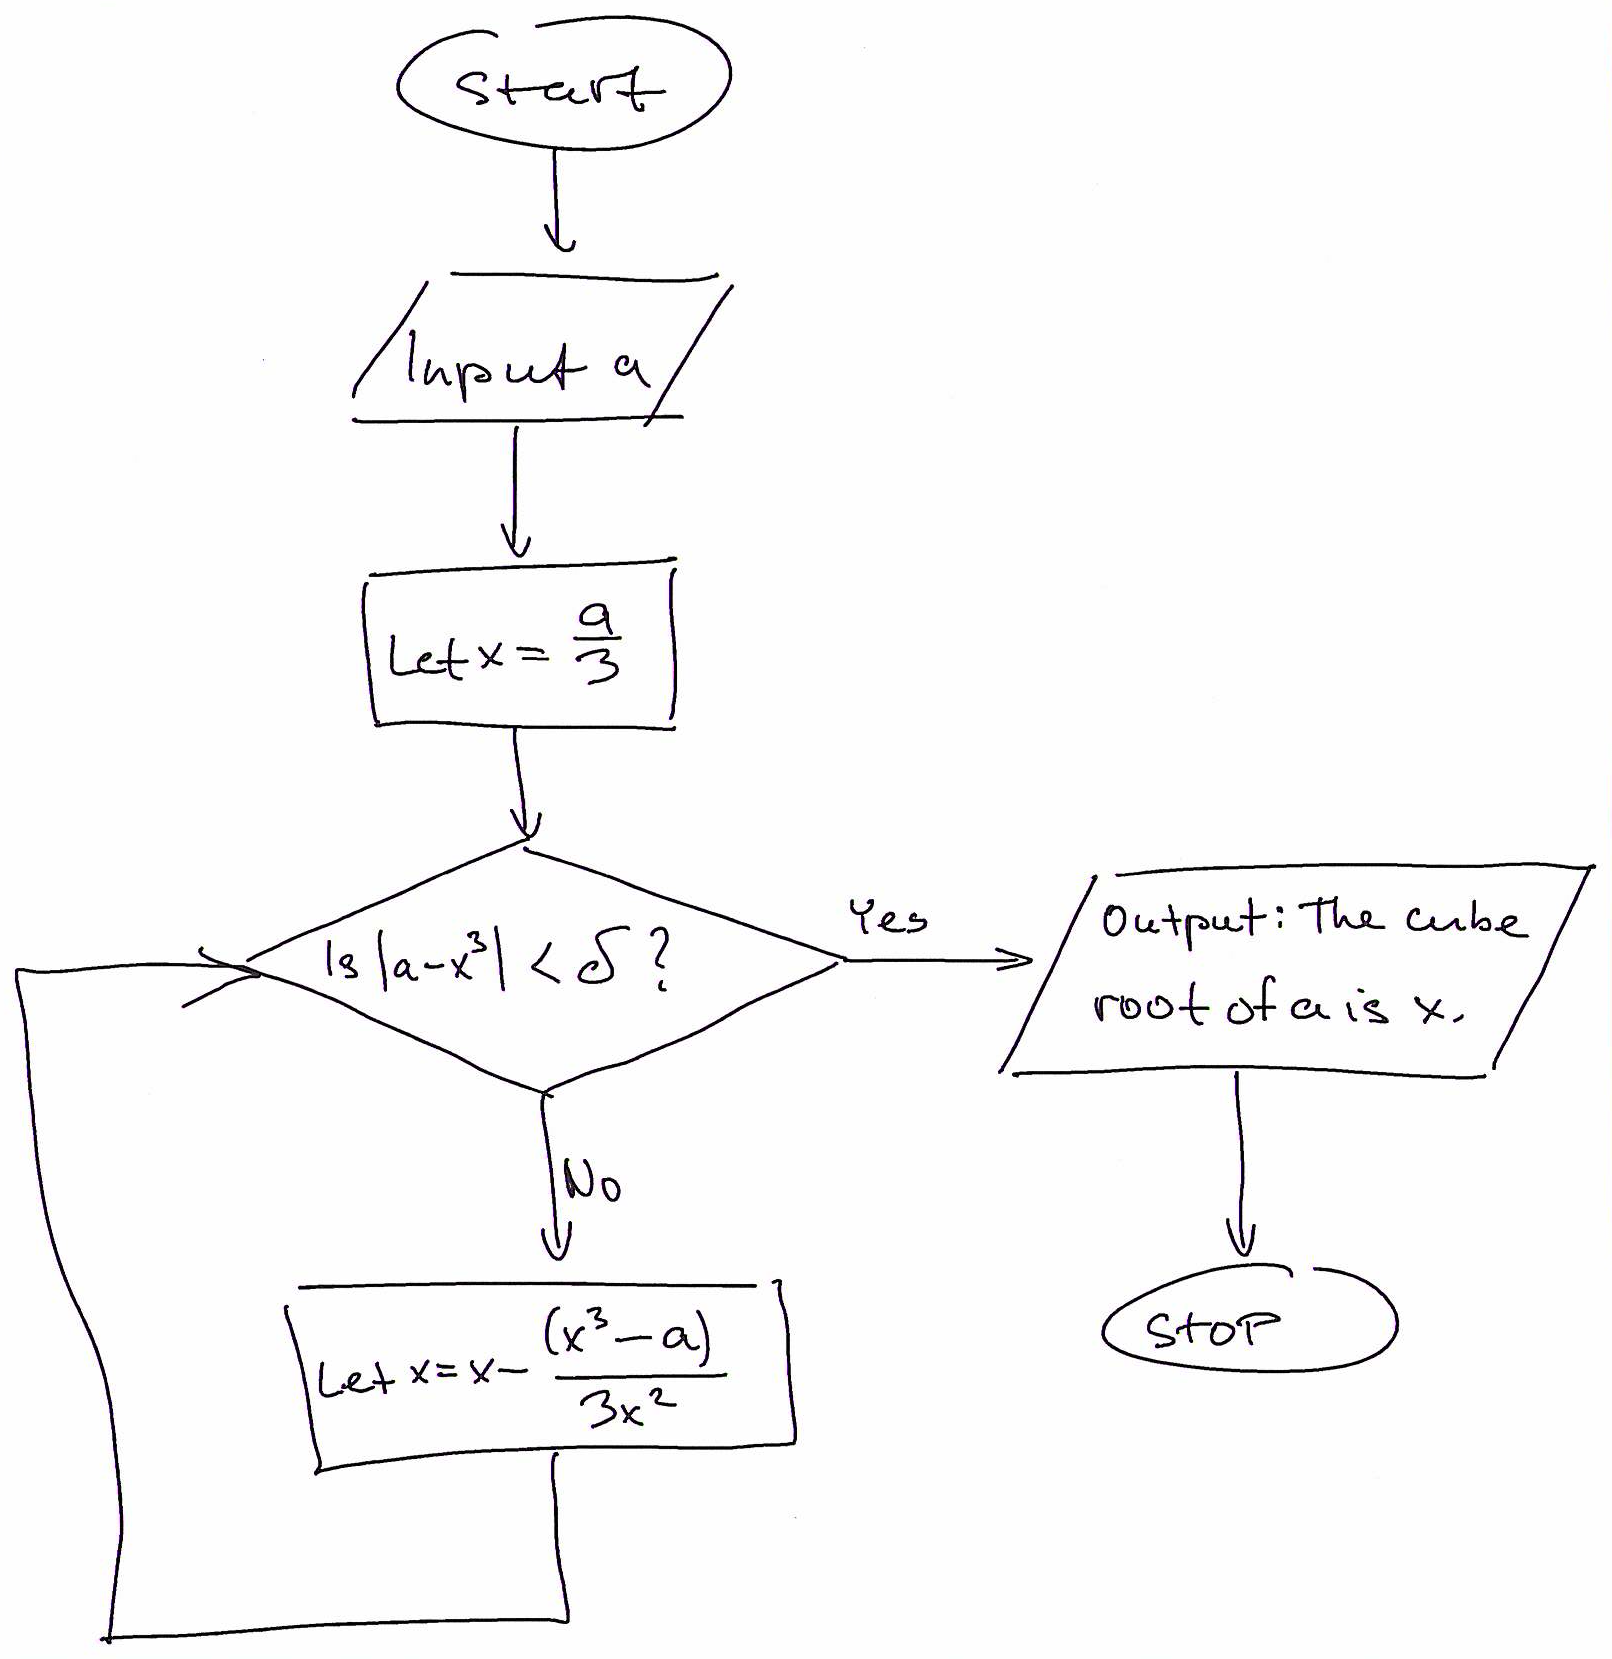 Start
Input a
Let x = a/3
Is |a-x³| < δ ?
Yes
Output: The cube
root of a is x.
No
Let x = x - (x³ - a)/3x²
Stop